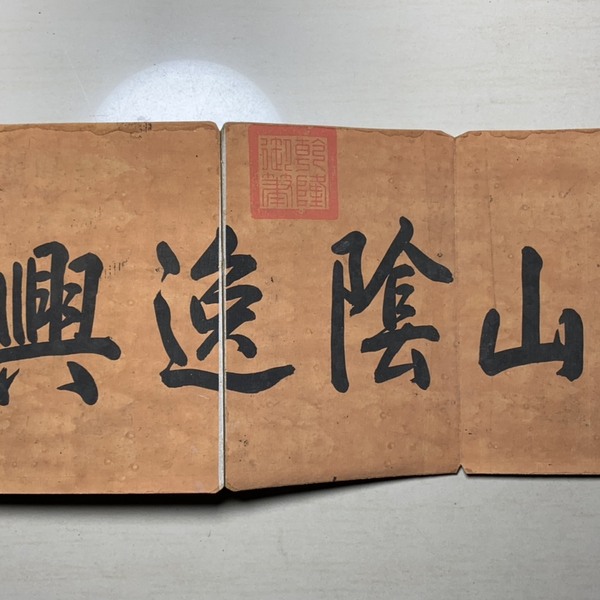 山陰逸興
乾隆御筆